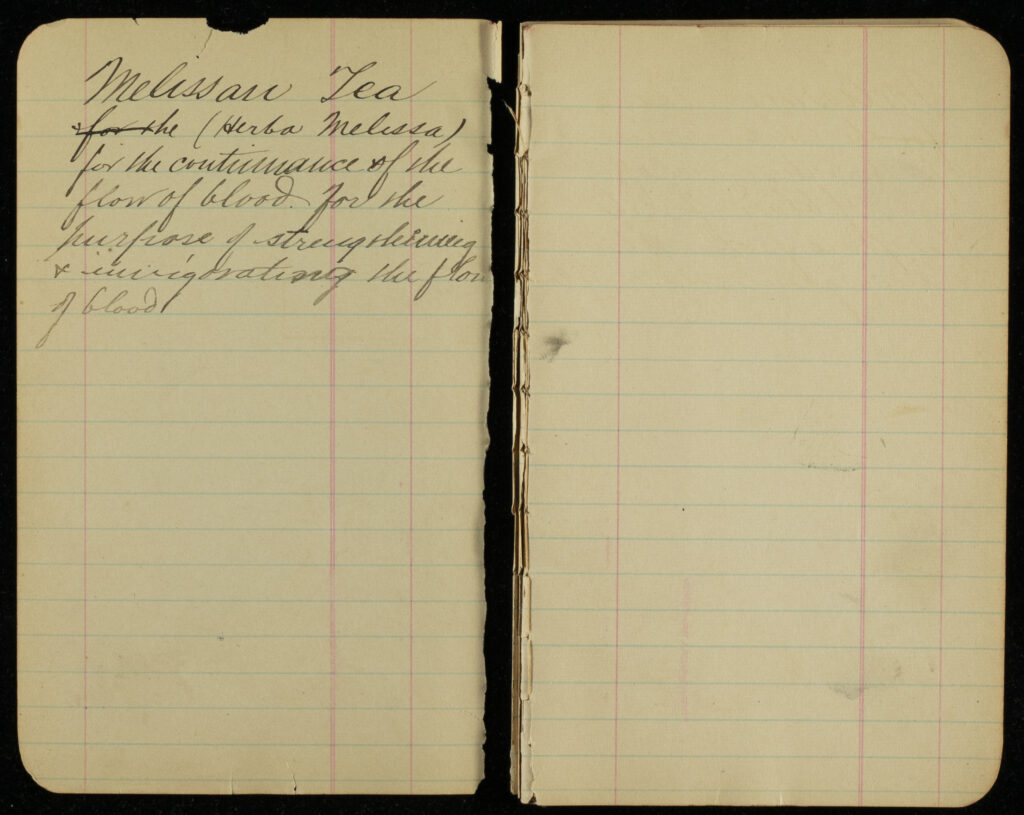 Melissan Tea
for the (Herba Melissa)
for the continuance of the
flow of blood. for the
purpose of strengthening
& invigorating the flow
of blood